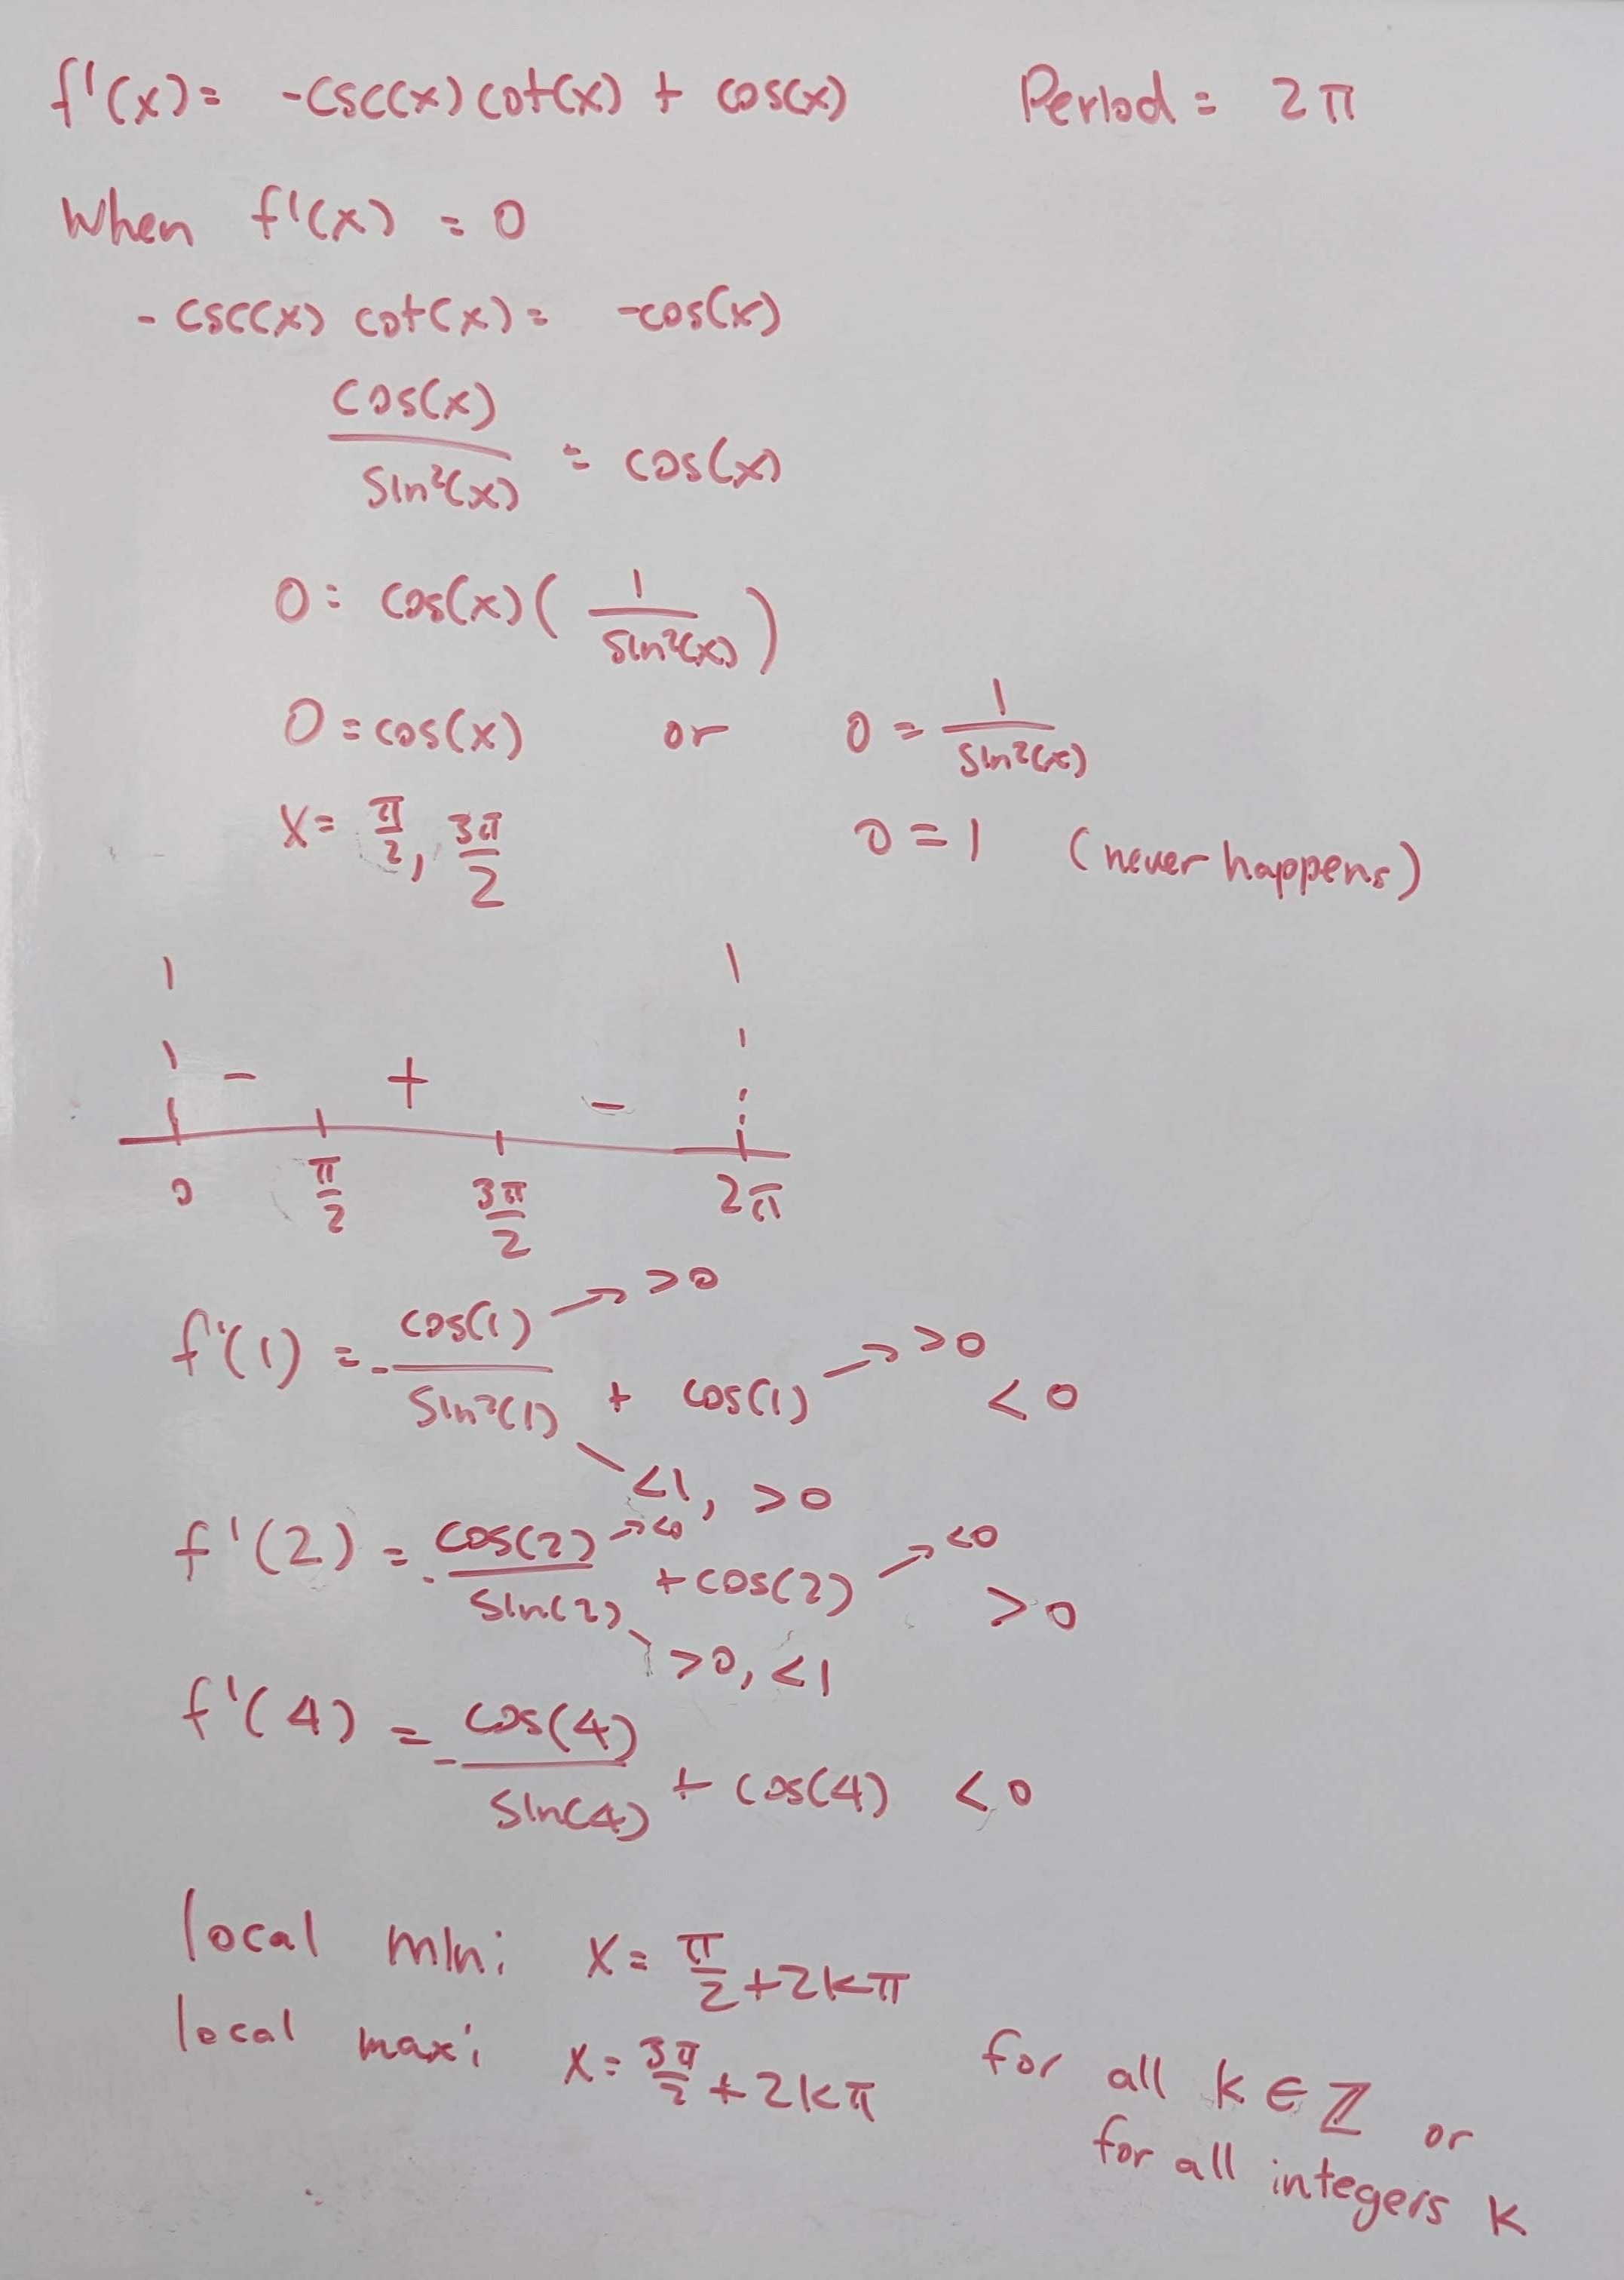 f'(x) = -csc(x) cot(x) + cos(x) Period = 2π
When f'(x) = 0
-csc(x) cot(x) = -cos(x)
cos(x)/sin²(x) = cos(x)
0 = cos(x)(1/sin²(x))
0 = cos(x) or 0 = 1/sin²(x)
x = π/2, 3π/2 0 = 1 (never happens)
- + -
0 π/2 3π/2 2π
f'(1) = -cos(1)/sin²(1) + cos(1) < 0
→ >0 → >0
<1, >0
f'(2) = -cos(2)/sin(2) + cos(2) > 0
→ <0 → <0
>0, <1
f'(4) = -cos(4)/sin(4) + cos(4) < 0
local min: x = π/2 + 2kπ
local max: x = 3π/2 + 2kπ for all k ∈ ℤ or
for all integers k